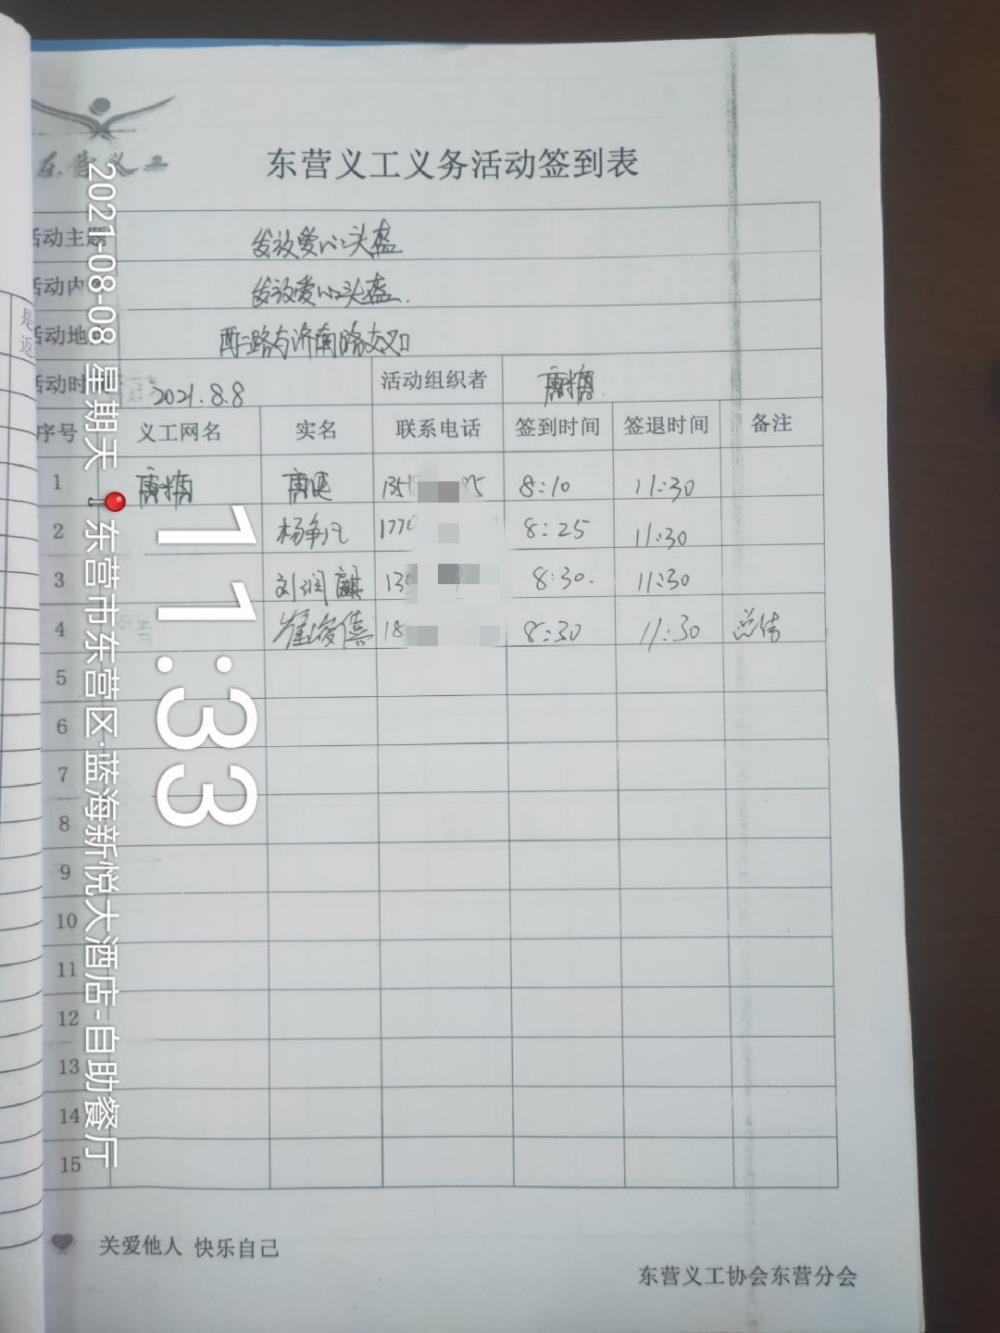 东营义工
东营义工义务活动签到表
活动主题 发放爱心头盔
活动内 发放爱心头盔.
活动地 西二路与济南路交叉口
活动时 2021.8.8 活动组织者
序号 义工网名 实名 联系电话 签到时间 签退时间 备注
1 135 8:10 11:30
2 1770 8:25 11:30
3 刘润麒 135 8:30. 11:30
4 崔俊僖 18 8:30 11:30 总结
5
6
7
8
9
10
11
12
13
14
15
关爱他人 快乐自己
东营义工协会东营分会
11:33
2021-08-08 星期天 东营市东营区·蓝海新悦大酒店-自助餐厅
是